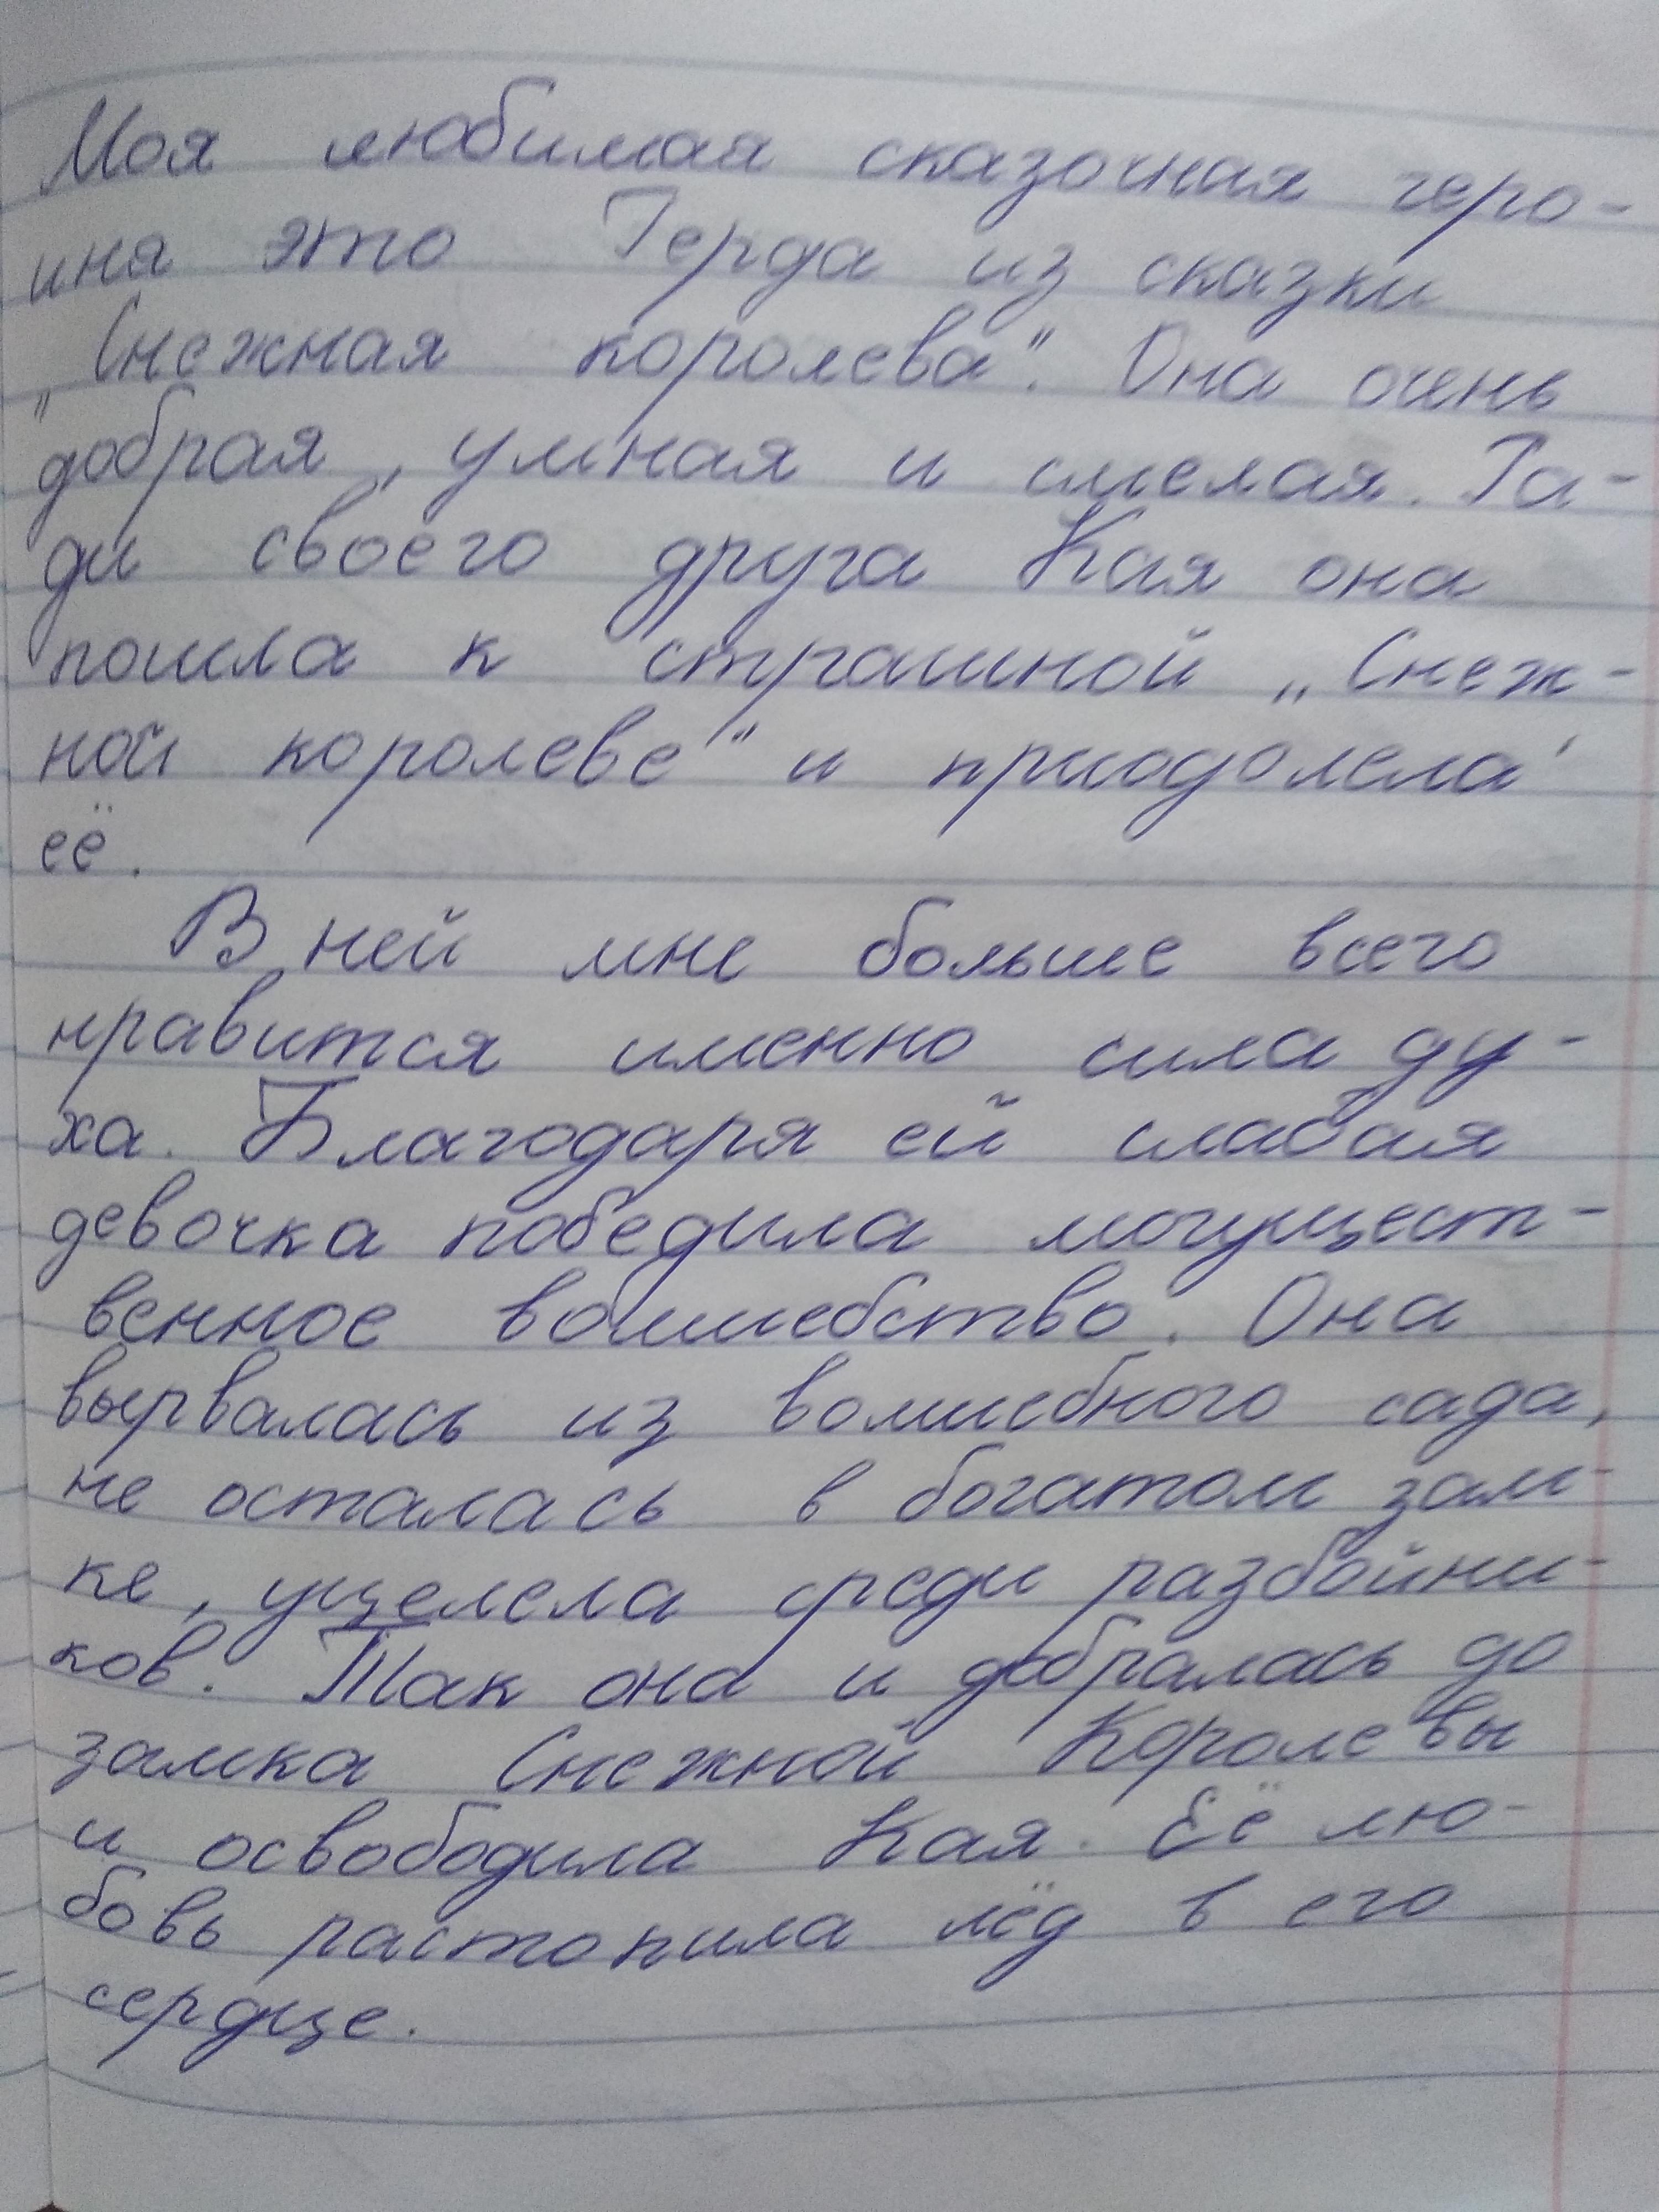 Моя любимая сказочная геро-
иня это Герда из сказки
„Снежная королева". Она очень
добрая, умная и смелая. Ра-
ди своего друга Кая она
пошла к страшной „Снеж-
ной королеве" и приодолела
её.
В ней мне больше всего
нравится именно сила ду-
ха. Благодаря ей слабая
девочка победила могущест-
венное волшебство. Она
вырвалась из волшебного сада,
не осталась в богатом зам-
ке, уцелела среди разбойни-
ков. Так она и добралась до
замка Снежной Королевы
и освободила Кая. Её лю-
бовь растопила лёд в его
сердце.